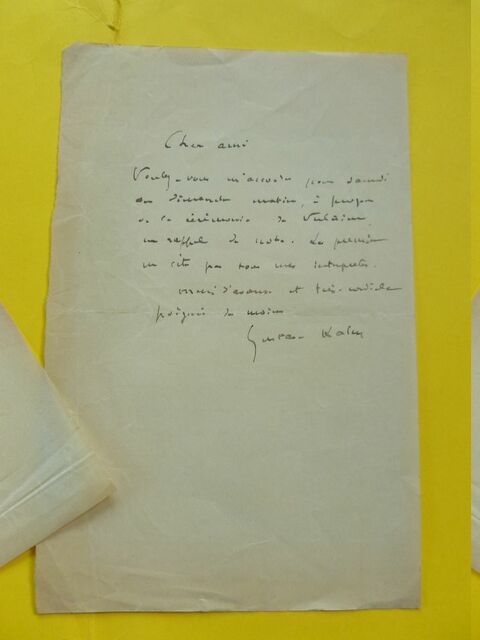 Cher ami
Voulez-vous m'accorder pour samedi
ou dimanche matin, à propos
de la cérémonie de Verlaine,
un rappel de note. La première
ne cite pas tous mes interprètes.
merci d'avance et très-cordiale
poignée de mains
Gustave Kahn